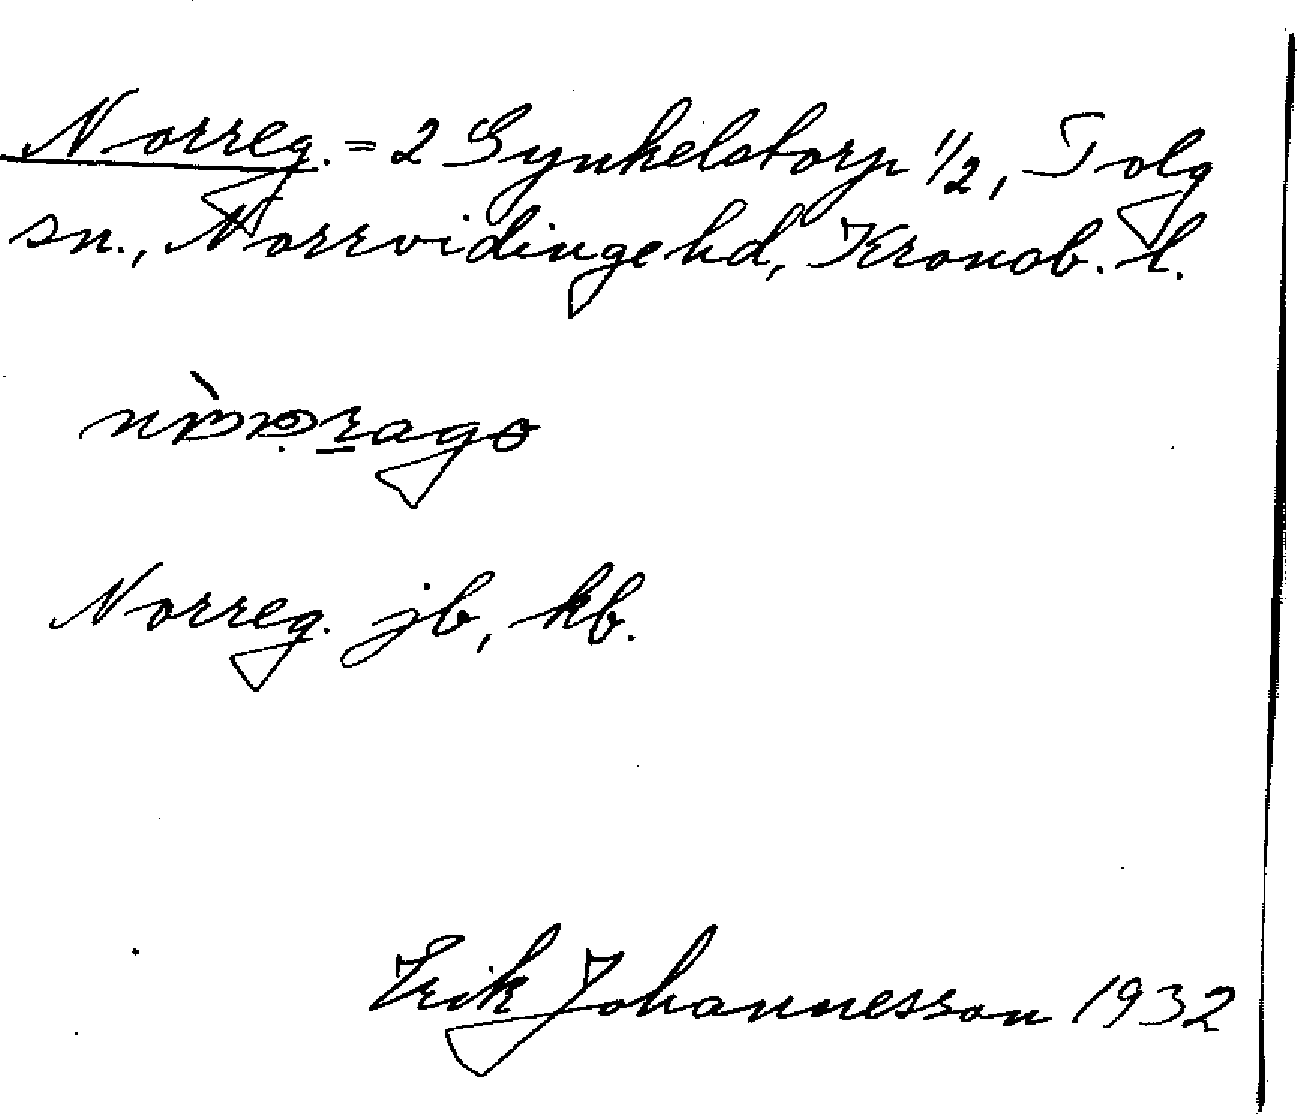 Norreg. = 2 Synkelstorp 1/2, Tolg
sn., Norrvidinge hd, Kronob. l.
Norreg. jb, kb.
Erik Johannesson 1932